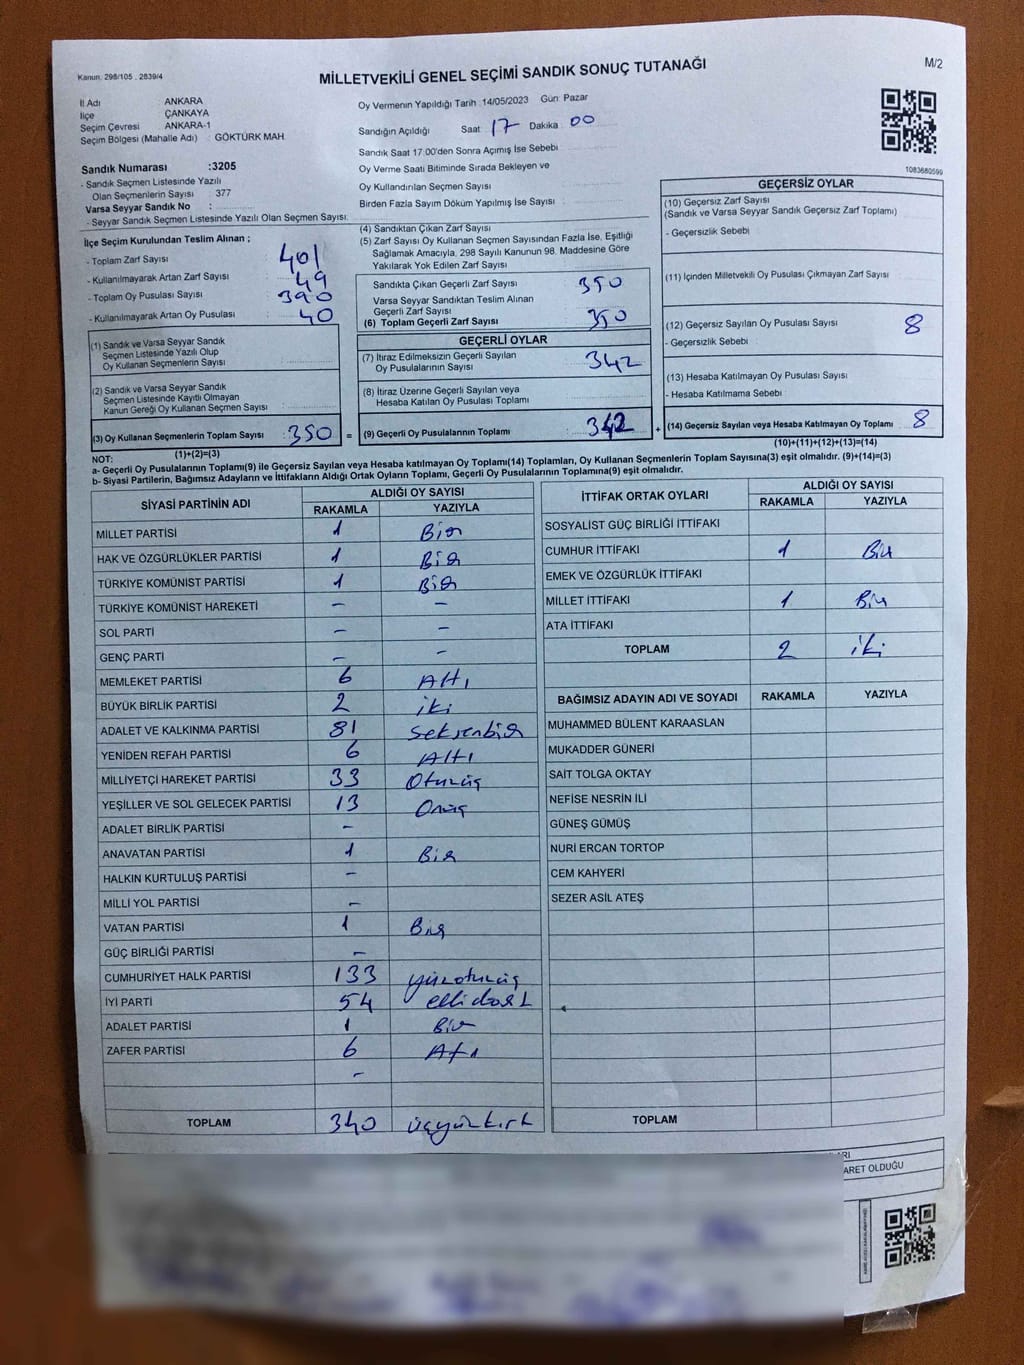 Kanun. 298/105 . 2839/4
MİLLETVEKİLİ GENEL SEÇİMİ SANDIK SONUÇ TUTANAĞI
M/2
İl Adı ANKARA
İlçe ÇANKAYA
Seçim Çevresi ANKARA-1
Seçim Bölgesi (Mahalle Adı) : GÖKTÜRK MAH.
Oy Vermenin Yapıldığı Tarih :14/05/2023 Gün: Pazar
Sandığın Açıldığı Saat 17 Dakika 00
Sandık Saat 17:00'den Sonra Açımış İse Sebebi
Oy Verme Saati Bitiminde Sırada Bekleyen ve
Oy Kullandırılan Seçmen Sayısı
Birden Fazla Sayım Döküm Yapılmış İse Sayısı :
1083680599
Sandık Numarası :3205
- Sandık Seçmen Listesinde Yazılı
Olan Seçmenlerin Sayısı : 377
Varsa Seyyar Sandık No :
- Seyyar Sandık Seçmen Listesinde Yazılı Olan Seçmen Sayısı:
İlçe Seçim Kurulundan Teslim Alınan ;
- Toplam Zarf Sayısı : 401
- Kullanılmayarak Artan Zarf Sayısı : 49
- Toplam Oy Pusulası Sayısı : 390
- Kullanılmayarak Artan Oy Pusulası : 40
(1) Sandık ve Varsa Seyyar Sandık
Seçmen Listesinde Yazılı Olup
Oy Kullanan Seçmenlerin Sayısı :
(2) Sandık ve Varsa Seyyar Sandık
Seçmen Listesinde Kayıtlı Olmayan
Kanun Gereği Oy Kullanan Seçmen Sayısı :
(3) Oy Kullanan Seçmenlerin Toplam Sayısı : 350 =
(1)+(2)=(3)
(4) Sandıktan Çıkan Zarf Sayısı :
(5) Zarf Sayısı Oy Kullanan Seçmen Sayısından Fazla İse, Eşitliği
Sağlamak Amacıyla, 298 Sayılı Kanunun 98. Maddesine Göre
Yakılarak Yok Edilen Zarf Sayısı :
Sandıkta Çıkan Geçerli Zarf Sayısı : 350
Varsa Seyyar Sandıktan Teslim Alınan
Geçerli Zarf Sayısı
(6) Toplam Geçerli Zarf Sayısı : 350
GEÇERLİ OYLAR
(7) İtiraz Edilmeksizin Geçerli Sayılan
Oy Pusulalarının Sayısı : 342
(8) İtiraz Üzerine Geçerli Sayılan veya
Hesaba Katılan Oy Pusulası Toplamı :
(9) Geçerli Oy Pusulalarının Toplamı : 342 +
GEÇERSİZ OYLAR
(10) Geçersiz Zarf Sayısı
(Sandık ve Varsa Seyyar Sandık Geçersiz Zarf Toplamı)
- Geçersizlik Sebebi
(11) İçinden Milletvekili Oy Pusulası Çıkmayan Zarf Sayısı
(12) Geçersiz Sayılan Oy Pusulası Sayısı : 8
- Geçersizlik Sebebi :
(13) Hesaba Katılmayan Oy Pusulası Sayısı
- Hesaba Katılmama Sebebi
(14) Geçersiz Sayılan veya Hesaba Katılmayan Oy Toplamı : 8
(10)+(11)+(12)+(13)=(14)
NOT:
a- Geçerli Oy Pusulalarının Toplamı(9) ile Geçersiz Sayılan veya Hesaba katılmayan Oy Toplamı(14) Toplamları, Oy Kullanan Seçmenlerin Toplam Sayısına(3) eşit olmalıdır. (9)+(14)=(3)
b- Siyasi Partilerin, Bağımsız Adayların ve İttifakların Aldığı Ortak Oyların Toplamı, Geçerli Oy Pusulalarının Toplamına(9) eşit olmalıdır.
SİYASİ PARTİNİN ADI ALDIĞI OY SAYISI
RAKAMLA YAZIYLA
MİLLET PARTİSİ 1 Bir
HAK VE ÖZGÜRLÜKLER PARTİSİ 1 Bir
TÜRKİYE KOMÜNİST PARTİSİ 1 Bir
TÜRKİYE KOMÜNİST HAREKETİ - -
SOL PARTİ - -
GENÇ PARTİ - -
MEMLEKET PARTİSİ 6 Altı
BÜYÜK BİRLİK PARTİSİ 2 iki
ADALET VE KALKINMA PARTİSİ 81 seksenbir
YENİDEN REFAH PARTİSİ 6 Altı
MİLLİYETÇİ HAREKET PARTİSİ 33 Otuzüç
YEŞİLLER VE SOL GELECEK PARTİSİ 13 Onüç
ADALET BİRLİK PARTİSİ -
ANAVATAN PARTİSİ 1 Bir
HALKIN KURTULUŞ PARTİSİ -
MİLLİ YOL PARTİSİ -
VATAN PARTİSİ 1 Bir
GÜÇ BİRLİĞİ PARTİSİ -
CUMHURİYET HALK PARTİSİ 133 yüzotuzüç
İYİ PARTİ 54 ellidört
ADALET PARTİSİ 1 Bir
ZAFER PARTİSİ 6 Altı
-
TOPLAM 340 üçyüzkırk
İTTİFAK ORTAK OYLARI ALDIĞI OY SAYISI
RAKAMLA YAZIYLA
SOSYALİST GÜÇ BİRLİĞİ İTTİFAKI
CUMHUR İTTİFAKI 1 Bir
EMEK VE ÖZGÜRLÜK İTTİFAKI
MİLLET İTTİFAKI 1 Bir
ATA İTTİFAKI
TOPLAM 2 iki
BAĞIMSIZ ADAYIN ADI VE SOYADI RAKAMLA YAZIYLA
MUHAMMED BÜLENT KARAASLAN
MUKADDER GÜNERİ
SAİT TOLGA OKTAY
NEFİSE NESRİN İLİ
GÜNEŞ GÜMÜŞ
NURİ ERCAN TORTOP
CEM KAHYERİ
SEZER ASİL ATEŞ
TOPLAM
ARI
ARET OLDUĞU